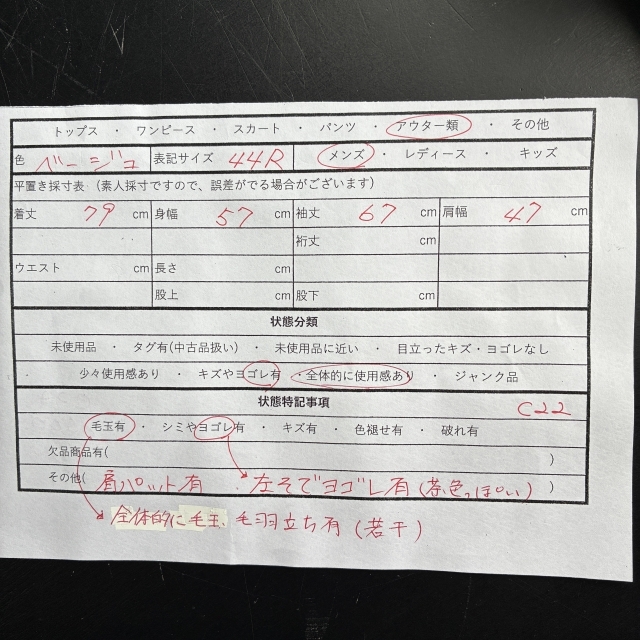 トップス ・ ワンピース ・ スカート ・ パンツ ・ アウター類 ・ その他
色 ベージュ 表記サイズ 44R メンズ ・ レディース ・ キッズ
平置き採寸表(素人採寸ですので、誤差がでる場合がございます)
着丈 79 cm 身幅 57 cm 袖丈 67 cm 肩幅 47 cm
裄丈 cm
ウエスト cm 長さ cm
股上 cm 股下 cm
状態分類
未使用品 ・ タグ有(中古品扱い) ・ 未使用品に近い ・ 目立ったキズ・ヨゴレなし
少々使用感あり ・ キズやヨゴレ有 ・全体的に使用感あり ・ ジャンク品
状態特記事項 C22
毛玉有 ・ シミやヨゴレ有 ・ キズ有 ・ 色褪せ有 ・ 破れ有
欠品商品有( )
その他( 肩パット有 左そでヨゴレ有(茶色っぽい) )
全体的に毛玉、毛羽立ち有(若干)